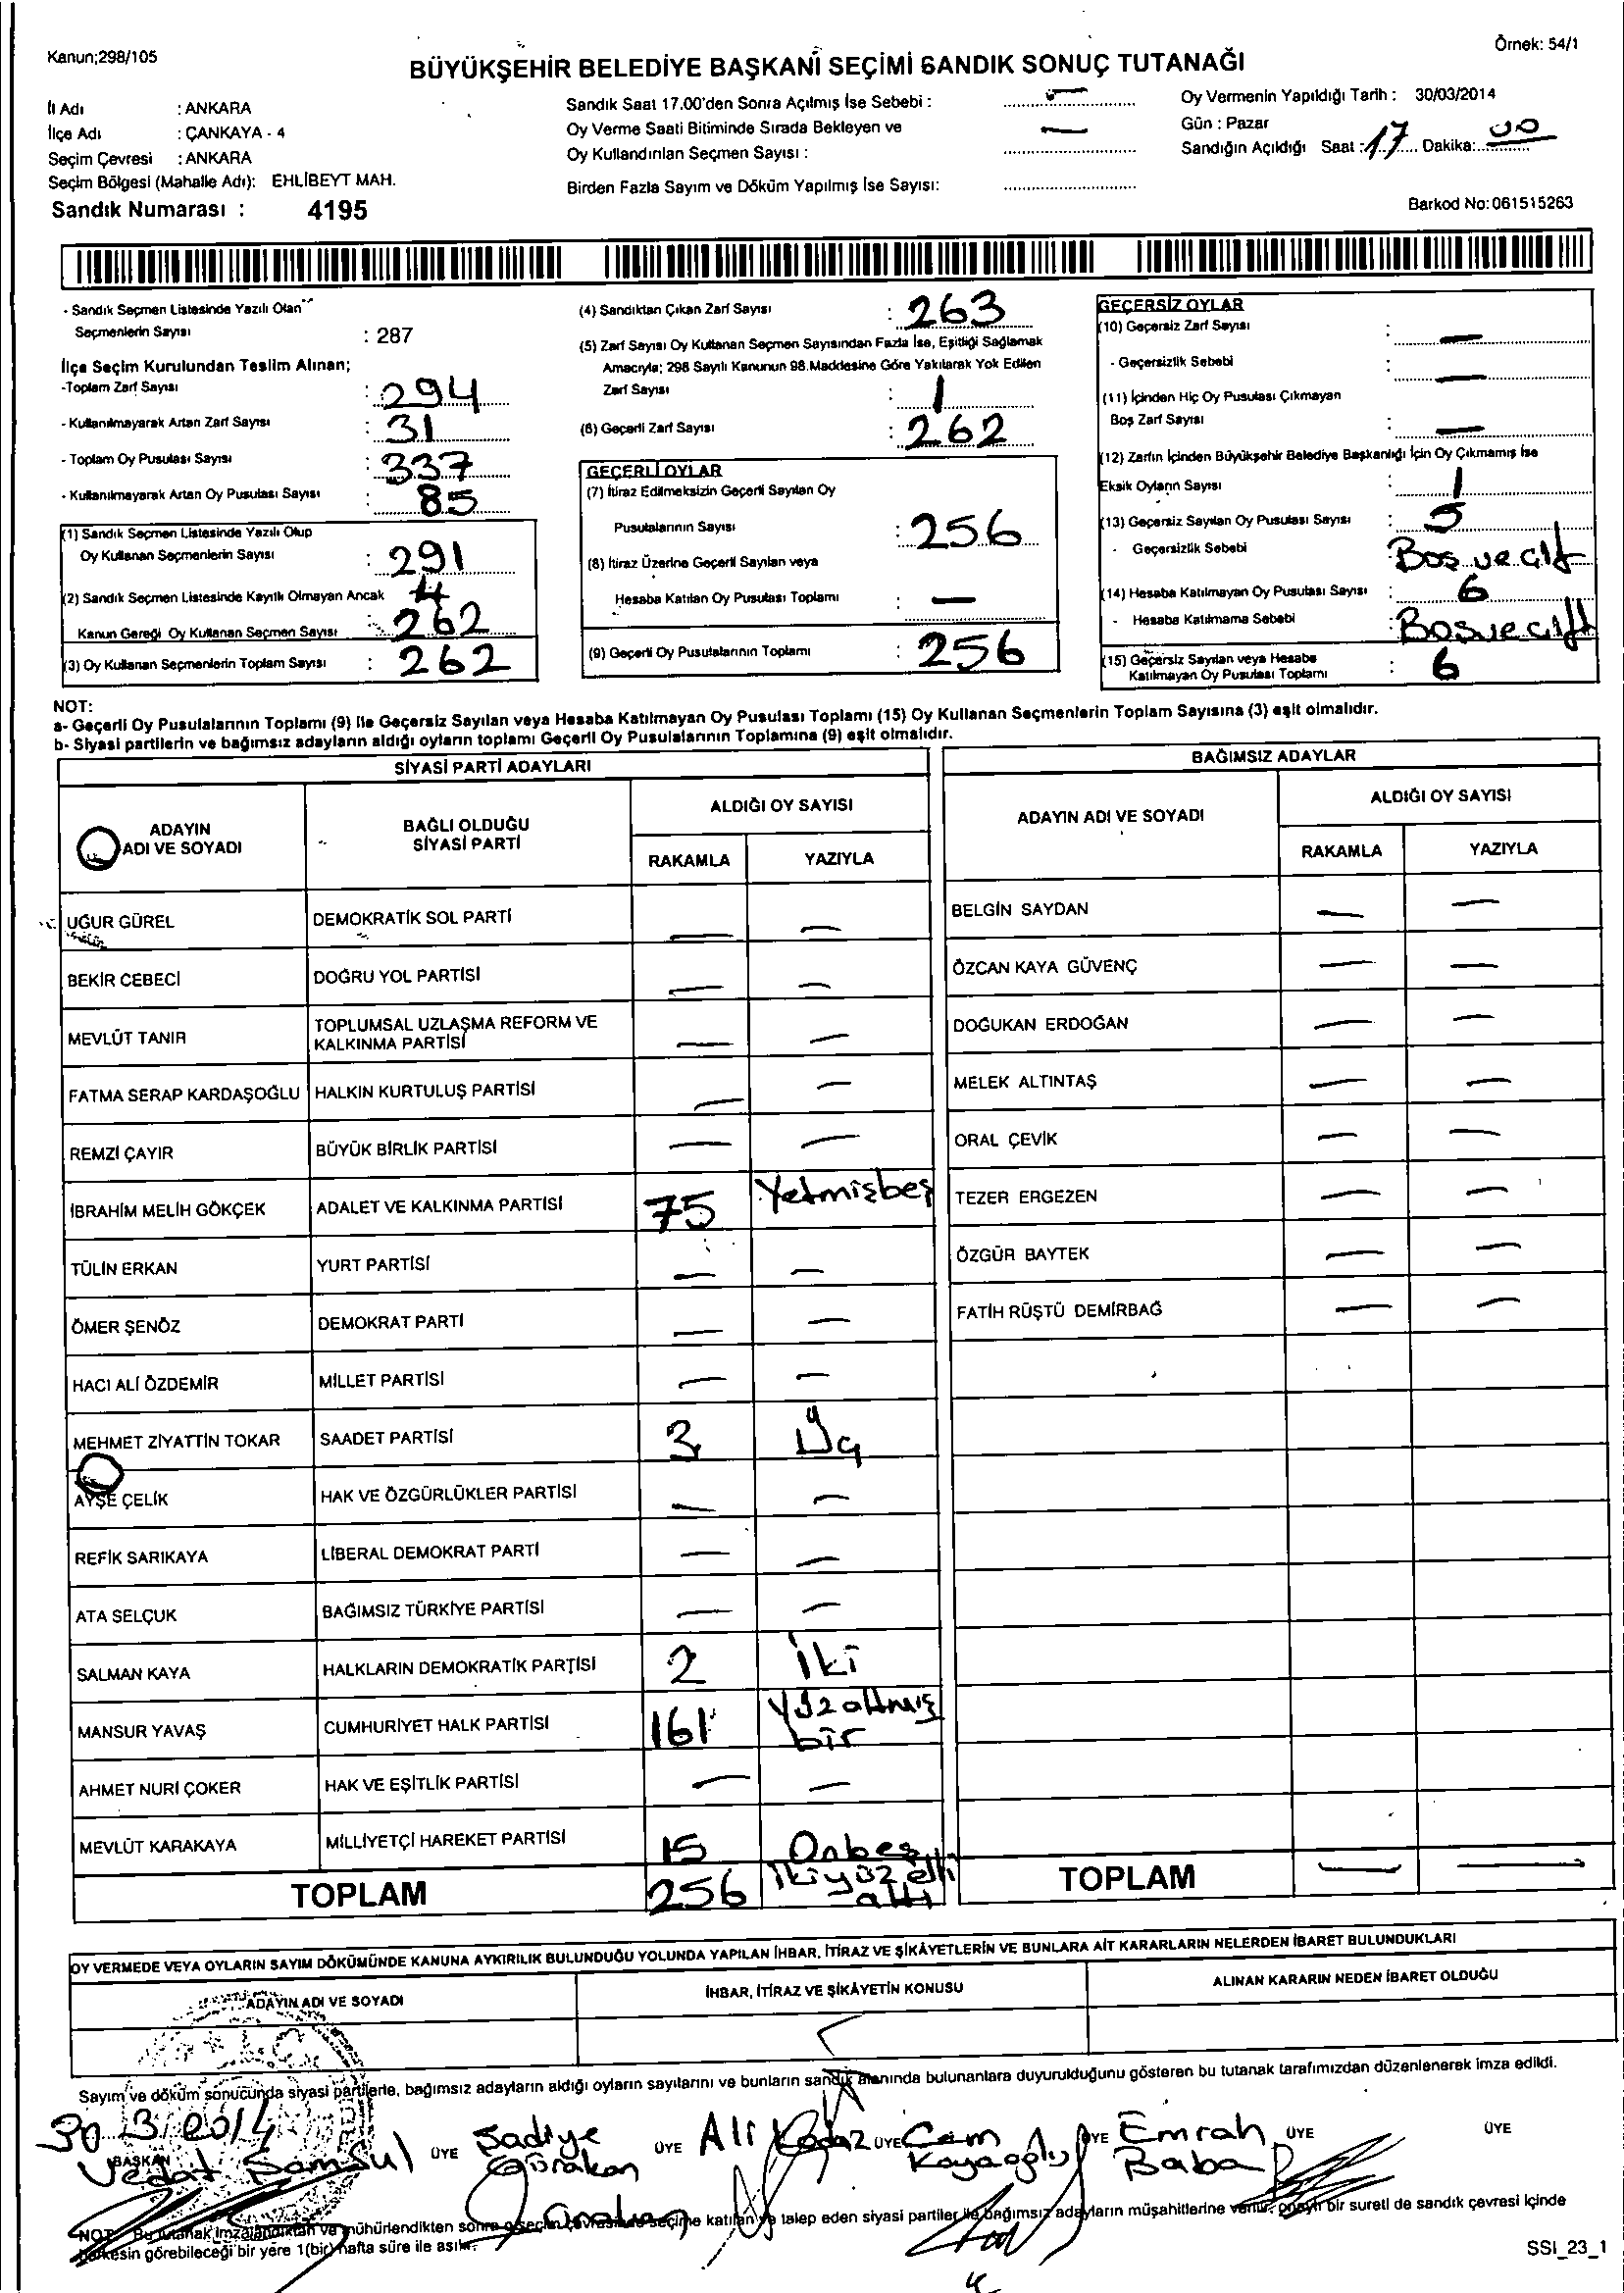 Kanun;298/105
Örnek: 54/1
BÜYÜKŞEHİR BELEDİYE BAŞKANI SEÇİMİ SANDIK SONUÇ TUTANAĞI
İl Adı : ANKARA
İlçe Adı : ÇANKAYA - 4
Seçim Çevresi : ANKARA
Seçim Bölgesi (Mahalle Adı): EHLİBEYT MAH.
Sandık Numarası : 4195
Sandık Saat 17.00'den Sonra Açılmış İse Sebebi : —
Oy Verme Saati Bitiminde Sırada Bekleyen ve
Oy Kullandırılan Seçmen Sayısı : —
Birden Fazla Sayım ve Döküm Yapılmış İse Sayısı:
Oy Vermenin Yapıldığı Tarih : 30/03/2014
Gün : Pazar
Sandığın Açıldığı Saat : 17 Dakika: 00
Barkod No: 061515263
- Sandık Seçmen Listesinde Yazılı Olan
Seçmenlerin Sayısı : 287
İlçe Seçim Kurulundan Teslim Alınan;
-Toplam Zarf Sayısı : 294
- Kullanılmayarak Artan Zarf Sayısı : 31
- Toplam Oy Pusulası Sayısı : 337
- Kullanılmayarak Artan Oy Pusulası Sayısı : 85
(1) Sandık Seçmen Listesinde Yazılı Olup
Oy Kullanan Seçmenlerin Sayısı : 291
(2) Sandık Seçmen Listesinde Kayıtlı Olmayan Ancak 4
Kanun Gereği Oy Kullanan Seçmen Sayısı : 262
(3) Oy Kullanan Seçmenlerin Toplam Sayısı : 262
(4) Sandıktan Çıkan Zarf Sayısı : 263
(5) Zarf Sayısı Oy Kullanan Seçmen Sayısından Fazla İse, Eşitliği Sağlamak
Amacıyla; 298 Sayılı Kanunun 98.Maddesine Göre Yakılarak Yok Edilen
Zarf Sayısı : 1
(6) Geçerli Zarf Sayısı : 262
GEÇERLİ OYLAR
(7) İtiraz Edilmeksizin Geçerli Sayılan Oy
Pusulalarının Sayısı : 256
(8) İtiraz Üzerine Geçerli Sayılan veya
Hesaba Katılan Oy Pusulası Toplamı : —
(9) Geçerli Oy Pusulalarının Toplamı : 256
GEÇERSİZ OYLAR
(10) Geçersiz Zarf Sayısı : —
- Geçersizlik Sebebi : —
(11) İçinden Hiç Oy Pusulası Çıkmayan
Boş Zarf Sayısı : —
(12) Zarfın İçinden Büyükşehir Belediye Başkanlığı İçin Oy Çıkmamış İse
Eksik Oyların Sayısı : 1
(13) Geçersiz Sayılan Oy Pusulası Sayısı : 5
- Geçersizlik Sebebi : Boş ve çift
(14) Hesaba Katılmayan Oy Pusulası Sayısı : 6
- Hesaba Katılmama Sebebi : Boş ve çift
(15) Geçersiz Sayılan veya Hesaba
Katılmayan Oy Pusulası Toplamı : 6
NOT:
a- Geçerli Oy Pusulalarının Toplamı (9) ile Geçersiz Sayılan veya Hesaba Katılmayan Oy Pusulası Toplamı (15) Oy Kullanan Seçmenlerin Toplam Sayısına (3) eşit olmalıdır.
b- Siyasi partilerin ve bağımsız adayların aldığı oyların toplamı Geçerli Oy Pusulalarının Toplamına (9) eşit olmalıdır.
SİYASİ PARTİ ADAYLARI
ADAYIN
ADI VE SOYADI
BAĞLI OLDUĞU
SİYASİ PARTİ
ALDIĞI OY SAYISI
RAKAMLA YAZIYLA
UĞUR GÜREL DEMOKRATİK SOL PARTİ — —
BEKİR CEBECİ DOĞRU YOL PARTİSİ — —
MEVLÜT TANIR TOPLUMSAL UZLAŞMA REFORM VE
KALKINMA PARTİSİ — —
FATMA SERAP KARDAŞOĞLU HALKIN KURTULUŞ PARTİSİ — —
REMZİ ÇAYIR BÜYÜK BİRLİK PARTİSİ — —
İBRAHİM MELİH GÖKÇEK ADALET VE KALKINMA PARTİSİ 75 Yetmişbeş
TÜLİN ERKAN YURT PARTİSİ — —
ÖMER ŞENÖZ DEMOKRAT PARTİ — —
HACI ALİ ÖZDEMİR MİLLET PARTİSİ — —
MEHMET ZİYATTİN TOKAR SAADET PARTİSİ 3 Üç
AYŞE ÇELİK HAK VE ÖZGÜRLÜKLER PARTİSİ — —
REFİK SARIKAYA LİBERAL DEMOKRAT PARTİ — —
ATA SELÇUK BAĞIMSIZ TÜRKİYE PARTİSİ — —
SALMAN KAYA HALKLARIN DEMOKRATİK PARTİSİ 2 İki
MANSUR YAVAŞ CUMHURİYET HALK PARTİSİ 161 Yüzaltmış
bir
AHMET NURİ ÇOKER HAK VE EŞİTLİK PARTİSİ — —
MEVLÜT KARAKAYA MİLLİYETÇİ HAREKET PARTİSİ 15 Onbeş
TOPLAM 256 İkiyüz elli
altı
BAĞIMSIZ ADAYLAR
ADAYIN ADI VE SOYADI
ALDIĞI OY SAYISI
RAKAMLA YAZIYLA
BELGİN SAYDAN — —
ÖZCAN KAYA GÜVENÇ — —
DOĞUKAN ERDOĞAN — —
MELEK ALTINTAŞ — —
ORAL ÇEVİK — —
TEZER ERGEZEN — —
ÖZGÜR BAYTEK — —
FATİH RÜŞTÜ DEMİRBAĞ — —
TOPLAM — —
OY VERMEDE VEYA OYLARIN SAYIM DÖKÜMÜNDE KANUNA AYKIRILIK BULUNDUĞU YOLUNDA YAPILAN İHBAR, İTİRAZ VE ŞİKÂYETLERİN VE BUNLARA AİT KARARLARIN NELERDEN İBARET BULUNDUKLARI
ADAYIN ADI VE SOYADI
İHBAR, İTİRAZ VE ŞİKÂYETİN KONUSU
ALINAN KARARIN NEDEN İBARET OLDUĞU
Sayım ve döküm sonucunda siyasi partilerle, bağımsız adayların aldığı oyların sayılarını ve bunların sandık alanında bulunanlara duyurulduğunu gösteren bu tutanak tarafımızdan düzenlenerek imza edildi.
30 3/2014
BAŞKAN ÜYE ÜYE ÜYE ÜYE ÜYE ÜYE
Vedat
Sadiye
Gürakan
Ali
Cem
Kayaoğlu
Emrah
Baba
NOT: Bu tutanak imzalandıktan ve mühürlendikten sonra o seçim çevresinde seçime katılan ve talep eden siyasi partiler ile bağımsız adayların müşahitlerine verilir. onaylı bir sureti de sandık çevresi içinde
herkesin görebileceği bir yere 1(bir) hafta süre ile asılır.
SSI_23_1